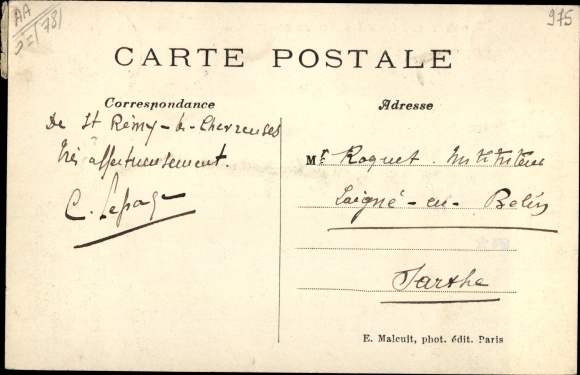 AA
975
CARTE POSTALE
Correspondance
Adresse
De St Rémy-les-Chevreuses
très affectueusement
C. Lepage
Mr Roquet Instituteur
Laigné-en-Belin
Sarthe
E. Malcuit, phot. édit. Paris